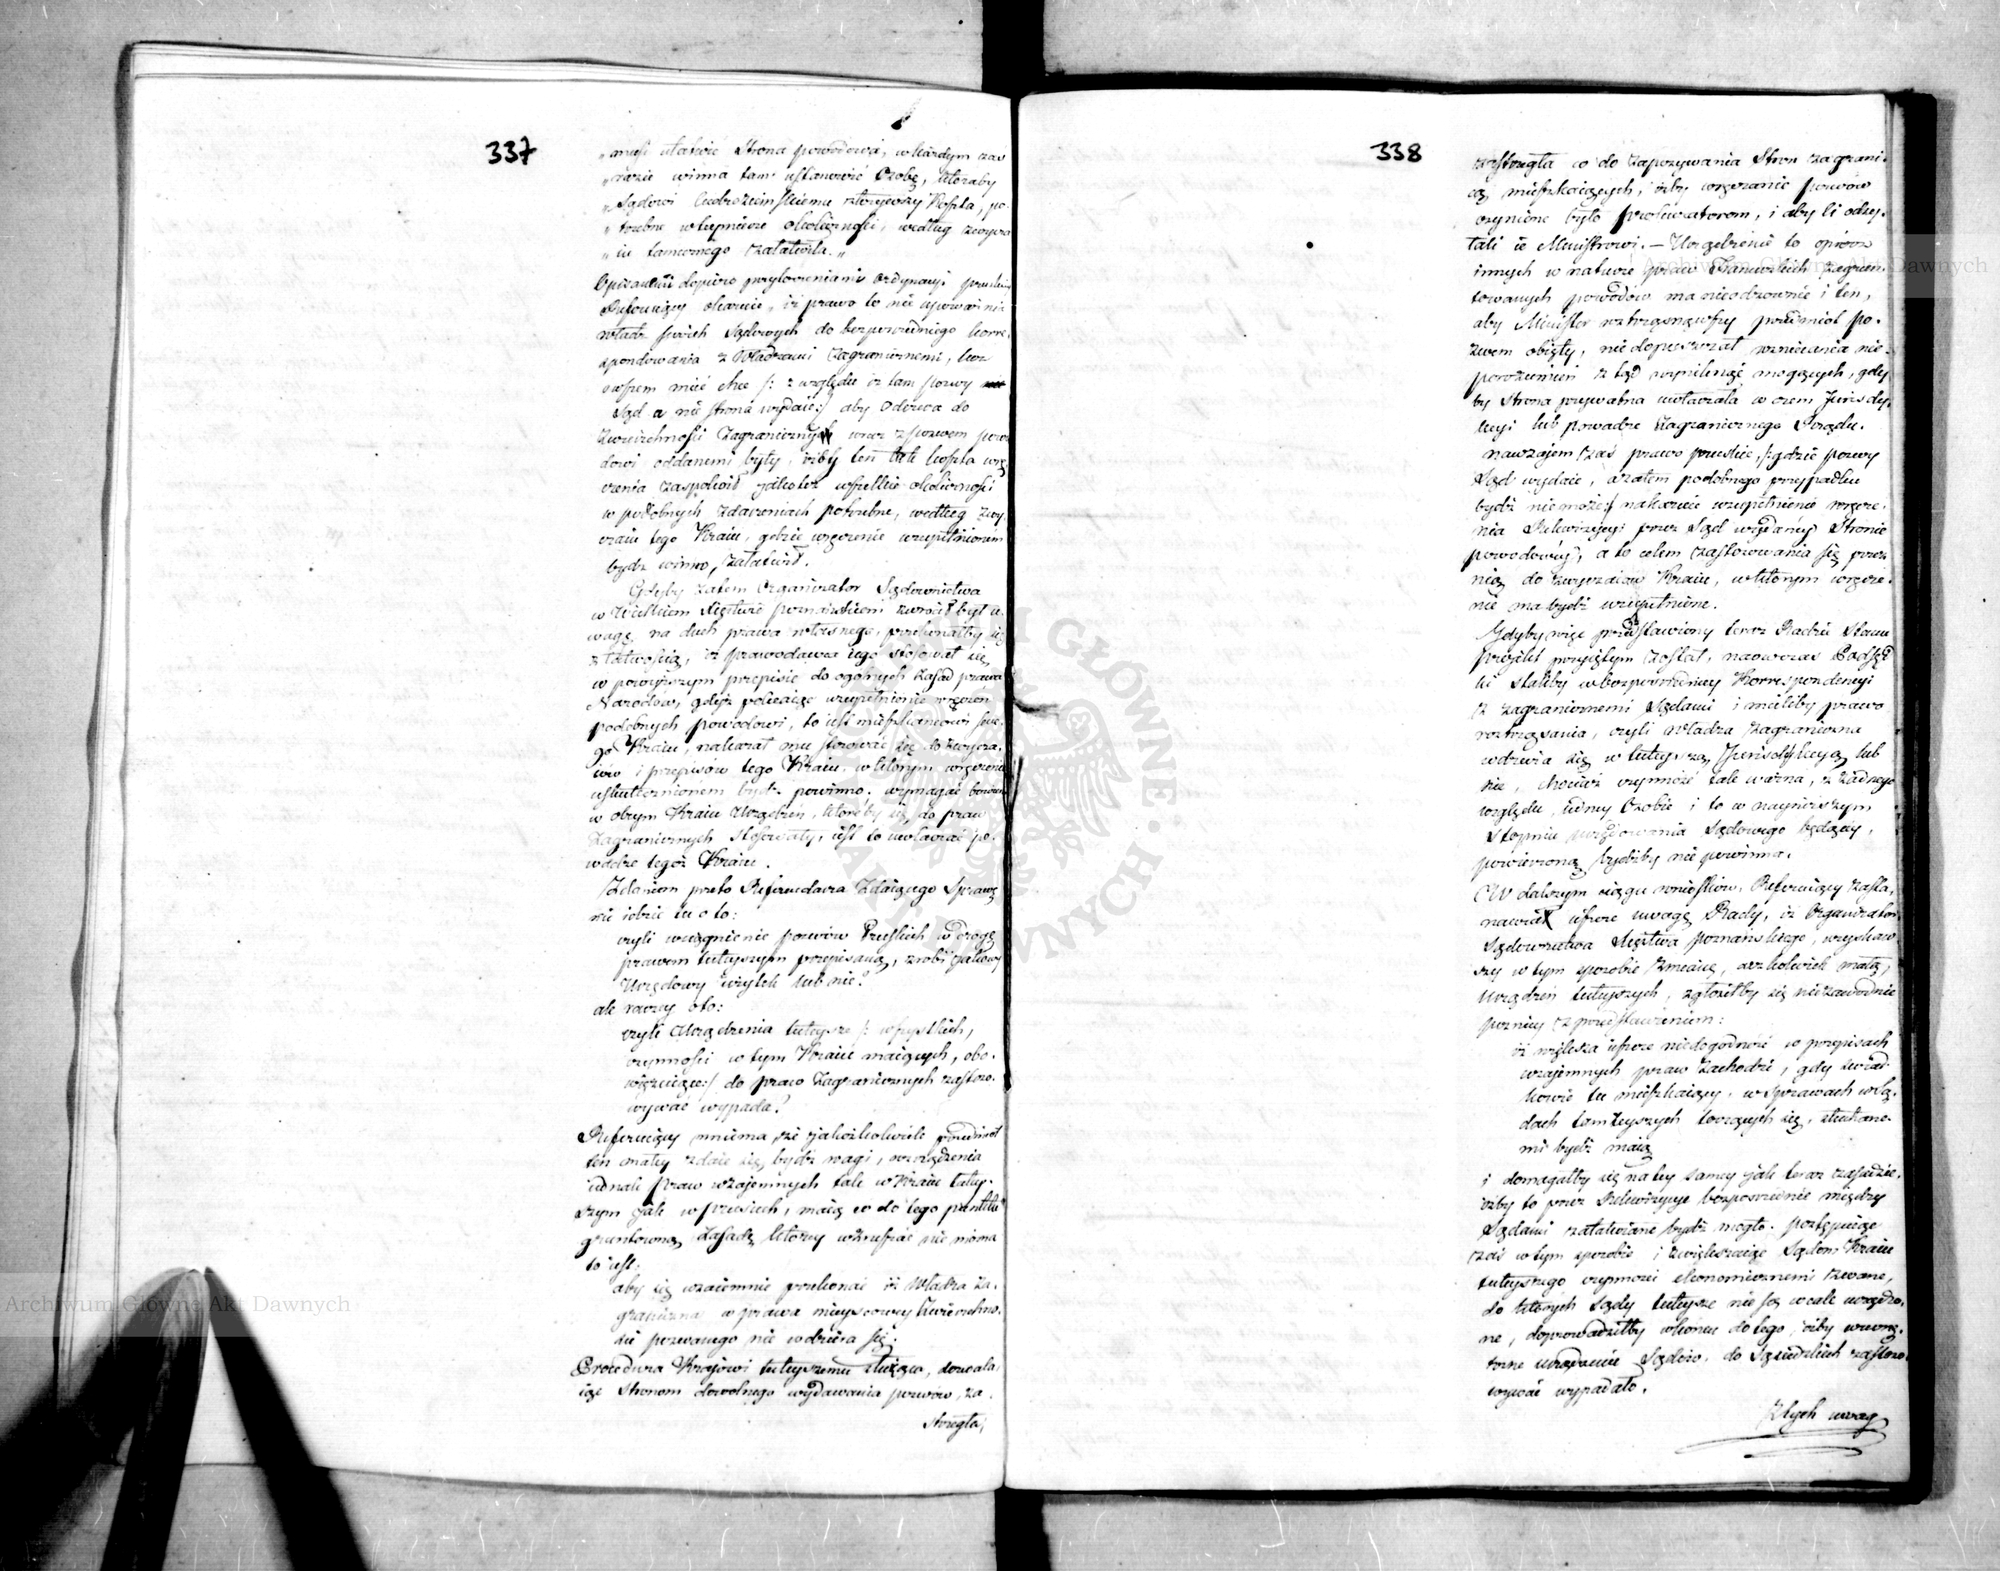 337
„musi ułatwić Strona powodowa, w każdym zaś
„razie winna tam ustanowić Osobę, któraby
„Sądowi Cudzoziemskiemu złożywszy Koszta, po-
„trzebne wtey mierze okoliczności, według zwycza
„iu tamecznego załatwiła.„
Opisanemi dopiero przytoczeniami Ordynacyi pruskiej
Referuiący okazuie, iż prawo to nie upoważnia
Władz swoich Sądowych do bezpośredniego korre-
spondowania z Władzami Zagranicznemi, lecz
owszem mieć chce /: z względu iż tam pozwy
Sąd a nie strona wydaie :/ aby Odezwa do
Zwierzchności Zagranicznych wraz z pozwem powo
dowi oddanemi były, iżby ten tak koszta wrę
czenia zaspokoił jakoteż wszelkie okoliczności
w podobnych zdarzeniach potrzebne, według zwy
czaiu tego Kraiu, gdzie wręczenie uzupełnionem
bydź winno, załatwił.
Gdyby zatem Organizator Sądownictwa
w Wielkiem Xięstwie poznańskiem zwrócił był u-
wagę na duch prawa własnego, przekonałby się
z łatwością, iż prawodawca iego stosował się
w powyższym przepisie do ogólnych zasad prawa
Narodów, gdyż polecaiąc uzupełnienie wręczeń
podobnych powodowi, to iest mieszkańcowi swe-
go Kraiu, nakazał mu stosować się do zwycza-
iów i przepisów tego Kraiu, w którym wręczenie
uskutecznionem bydź powinno. wymagać bowiem
w obcym Kraiu Urządzeń, któreby się do praw
Zagranicznych stosowały, iest to uwłaczać po-
wadze tegoż Kraiu.
Zdaniem przeto Referendarza Zdaiącego Sprawę
nie idzie tu o to:
czyli wciągnienie pozwów Pruskich w drogę
prawem tuteyszym przepisaną, zrobi jakowy
Urzędowy użytek lub nie?
ale raczey oto:
czyli Urządzenia tuteysze /: wszystkich,
czynności w tym Kraiu maiących, obo-
wiązuiące :/ do praw Zagranicznych zastoso-
wywać wypada?
Referuiący mniema, że jakożkolwiek przedmiot
ten małey zdaie się bydź wagi, urządzenia
iednak praw wzajemnych tak w Kraiu tutey-
szym jak w prusiech, maią co do tego punktu
gruntowną zasadę którey wzruszać nie można
to iest:
aby się wzaiemnie przekonać iż Władza za-
graniczna w prawa mieyscowey Zwierzchno-
ści pozwanego nie wdziera się.
Procedura Kraiowi tuteyszemu służąca, dozwala-
iąc Stronom dowolnego wydawania pozwów, za-
strzegła,
338
zastrzegła co do Zapozywania Stron zagrani-
cą mieszkaiących, iżby wręczanie pozwów
czynione było prokuratorom, i aby ci odsy-
łali ie Ministrowi. — Urządzenie to oprócz
innych w naturze praw Francuzkich zagrun-
towanych powodów ma nieodzownie i ten,
aby Minister roztrząsnąwszy przedmiot po-
zwem obięty, niedopuszczał wzniecania nie-
porozumień z tąd wyniknąć mogących, gdy
by strona prywatna uwłaczała w czem Jurisdyk
kcyi lub powadze Zagranicznego Rządu.
Nawzajem zaś prawo pruskie, /: gdzie pozwy
Sąd wydaie, a zatem podobnego przypadku
bydź niemoże :/ nakazuie uzupełnienie wręcze-
nia Rekwizycyi przez Sąd wydaney Stronie
powodowey, a to celem zastosowania się przez
nią do zwyczaiów Kraiu, w którym wręcze-
nie ma bydź uzupełnione.
Gdyby więc przedstawiony teraz Radzie Stanu
projekt przyiętym został, naówczas Podsęd
ki staliby w bezpośredniey Korrespondencyi
z zagranicznemi Sądami i mieliby prawo
roztrząsania, czyli Władza zagraniczna
wdziera się w tuteyszą Jurisdykcyą lub
nie, chociaż czynność tak ważna, z żadnego
względu, iedney Osobie i to w nayniższym
Stopniu urzędowania Sądowego będącey,
powierzoną bydźby nie powinna.
W dalszym ciągu wniosków, Referuiący zasta-
nawiał ieszcze uwagę Rady, iż Organizator
Sądownictwa Xięstwa poznańskiego, uzyskaw-
szy w tym sposobie zmianę, aczkolwiek małą,
Urządzeń tuteyszych, zgłosiłby się niezawodnie
pozniey z przedstawieniem:
iż większa ieszcze niedogodność w przepisach
wzajemnych praw zachodzi, gdy świad-
kowie tu mieszkaiący, w Sprawach w Są-
dach tamteyszych toczących się, słuchane-
mi bydź maią
i domagałby się na tey samey jak teraz zasadzie,
iżby to przez Rekwizycye bezpośrednie między
Sądami załatwiane bydź mogło. postępuiąc
zaś w tym sposobie i zwiększaiąc Sądom Kraiu
tuteyszego czynności ekonomicznemi zwane,
do których Sądy tuteysze nie są wcale urządzo-
ne, doprowadziłby wkońcu do tego, iżby wewnę-
trzne urządzenie Sądów, do Sąsiedzkich zastoso-
wywać wypadało.
Z tych uwag
Archiwum Główne Akt Dawnych
Archiwum Główne Akt Dawnych